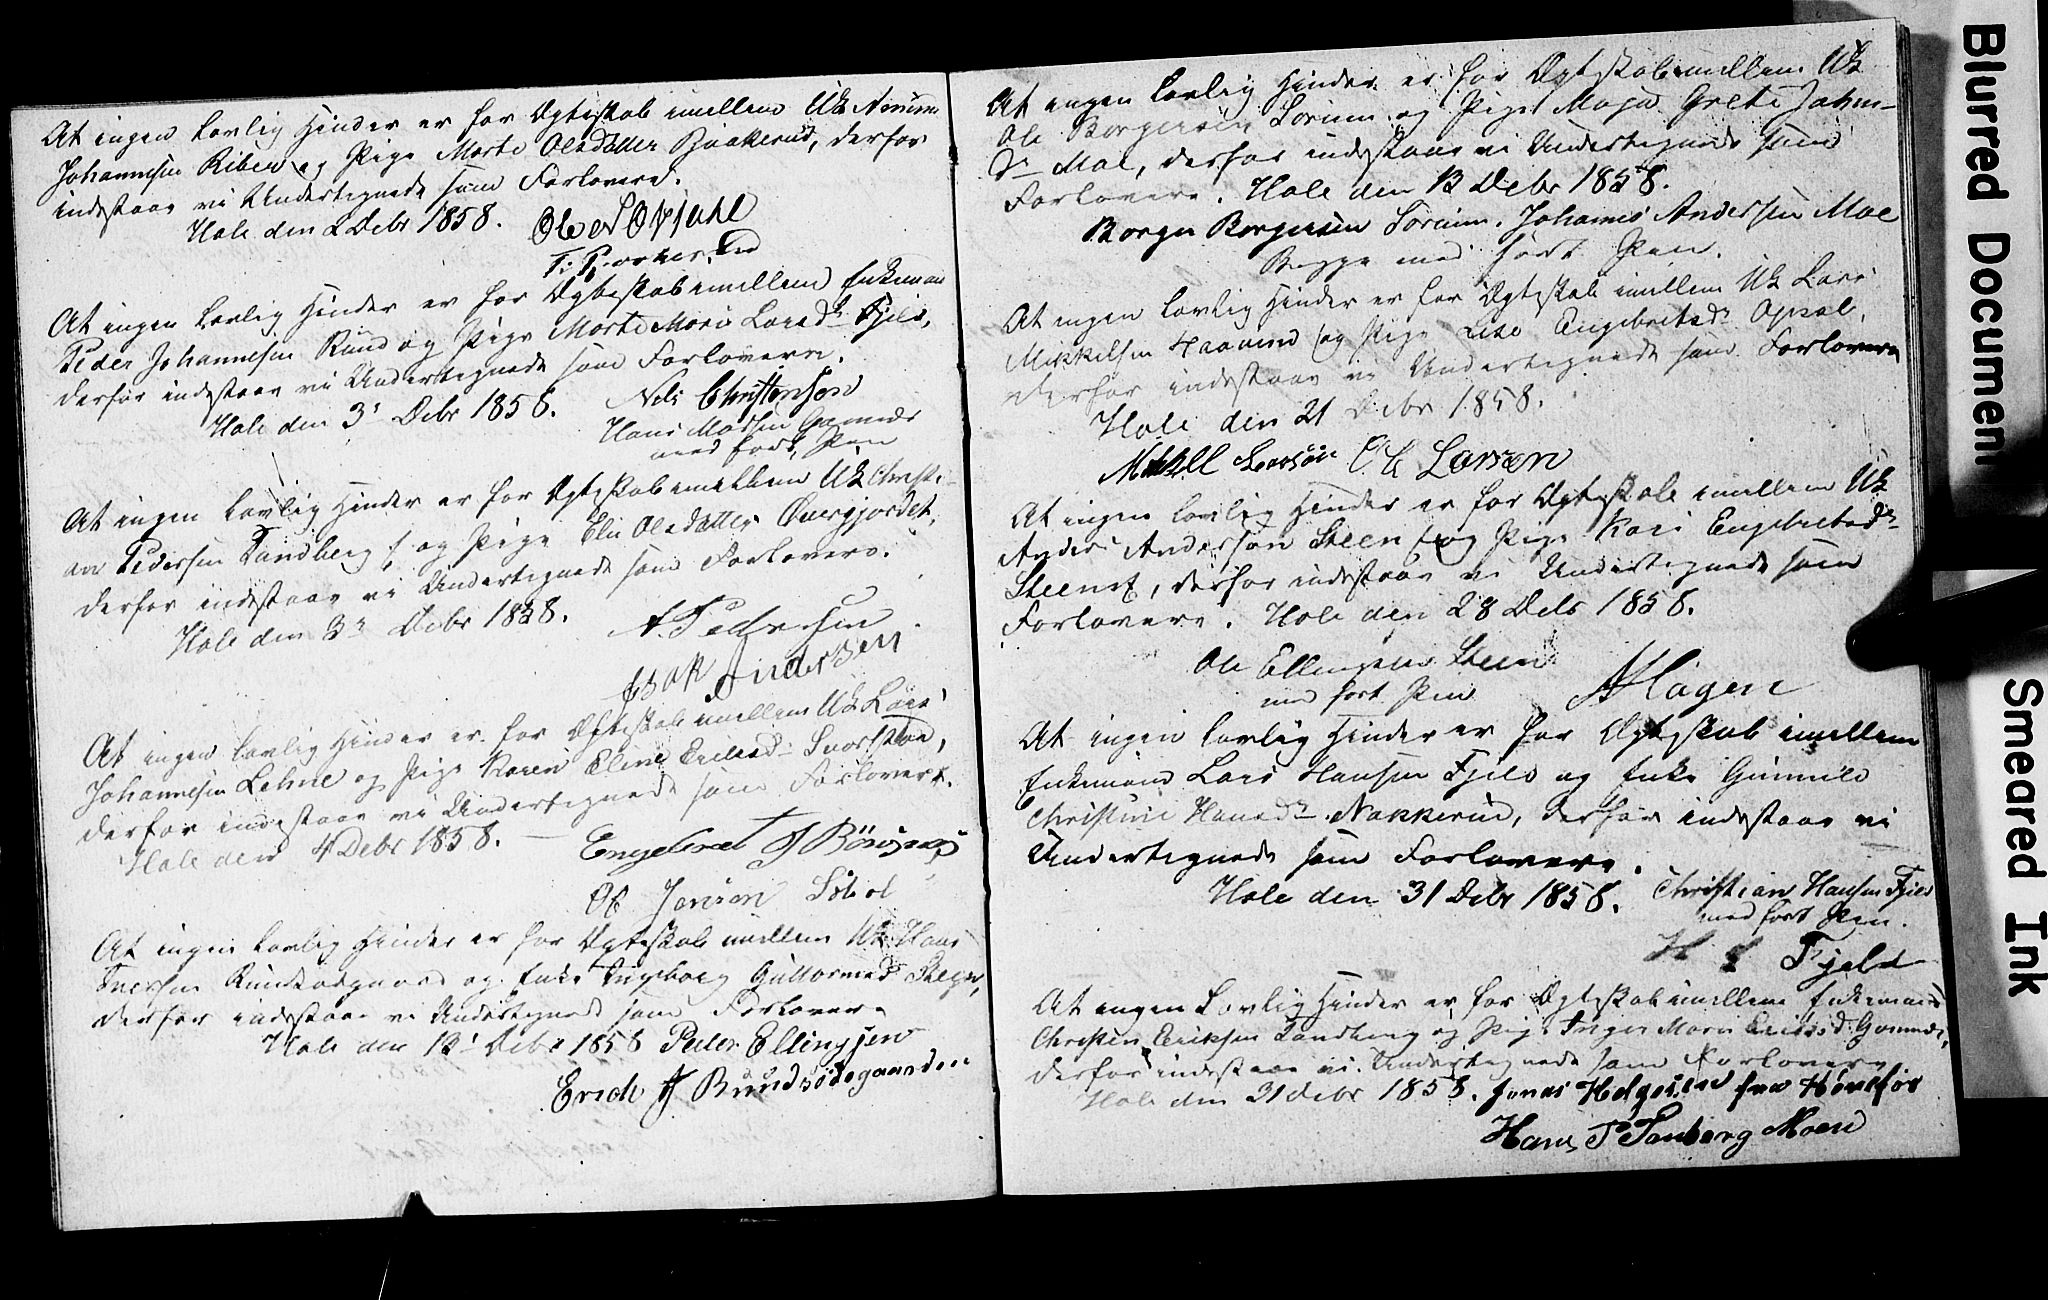 At ingen lovlig Hinder er for Ægteskab imellem Uk
Johannesen Riber og Pige Marte Olsdatter Baakerud, derfor
indestaar vi Undertegnede som Forlovere.
Hole den 2 Debr 1858.
At ingen lovlig Hinder er for Ægteskab imellem Enkemand
Peder Johannesen Rund og Pige Marte Marie Larsdr Fjeld,
derfor indestaar vi Undertegnede som Forlovere.
Hole den 3' Debr 1858. Nils Christensen
Hans Madsen
med ført Pen
At ingen lovlig Hinder er for Ægteskab imellem Uk Christi-
an Pedersen Tandberg og Pige Elie Olsdatter Øvergjordet,
derfor indestaar vi Undertegnede som Forlovere.
Hole den 3' Debr 1858. A. Pedersen
Esak Andersen
At ingen lovlig Hinder er for Ægteskab imellem Uk Lars
Johannesen Lehne og Pige Karen Eline Ericsd
derfor indestaar vi Undertegnede som Forlovere.
Hole den 4 Debr 1858. Engebret J
Ole Jensen
At ingen lovlig Hinder er for Ægteskab imellem Uk Hans
Iversen og Enke Ingeborg Guttormsd Steen,
derfor indestaar vi Undertegnede som Forlovere
Hole den 13' Debr 1858 Peder Ellingsen
Erich J Rundsødegaarden
At ingen lovlig Hinder er for Ægteskab imellem Uk
Ole Borgersen Sørum og Pige Maja Grete Johns-
Dr Moe, derfor indestaar vi Undertegnede som
Forlovere. Hole den 13 Debr 1858.
Borger Borgersen Sørum. Johannes Andersen Moe
Begge med ført Pen.
At ingen lovlig Hinder er for Ægteskab imellem Uk Lars
Mikkelsen og Pige Lise Engebretsdr Opsal,
derfor indestaar vi Undertegnede som Forlovere
Hole den 21 Debr 1858.
Mikkel Larsøn Ole Larsen
At ingen lovlig Hinder er for Ægteskab imellem Uk
Anders Andersen Steen og Pige Kari Engebretsdr
derfor indestaar vi Undertegnede som
Forlovere. Hole den 28 Debr 1858.
Ole Ellingsen Steen
med ført Pen A Hagen
At ingen lovlig Hinder er for Ægteskab imellem
Enkemand Lars Hansen Fjeld og Enke Gunnild
Christine Hansdr Nakkerud, derfor indestaar vi
Undertegnede som Forlovere.
Hole den 31 Debr 1858. Christian Hansen Fjeld
med ført Pen.
Fjeld
At ingen Lovlig Hinder er for Ægteskab imellem Enkemand
Christen Eriksen Tandberg og Pige Inger Marie Ericsd
derfor indestaar vi Undertegnede som Forlovere
Hole den 31 debr 1858. Jonas Helgesen fra Hønefos
Hans P Tanberg Moen
Blurred Documen
Smeared Ink